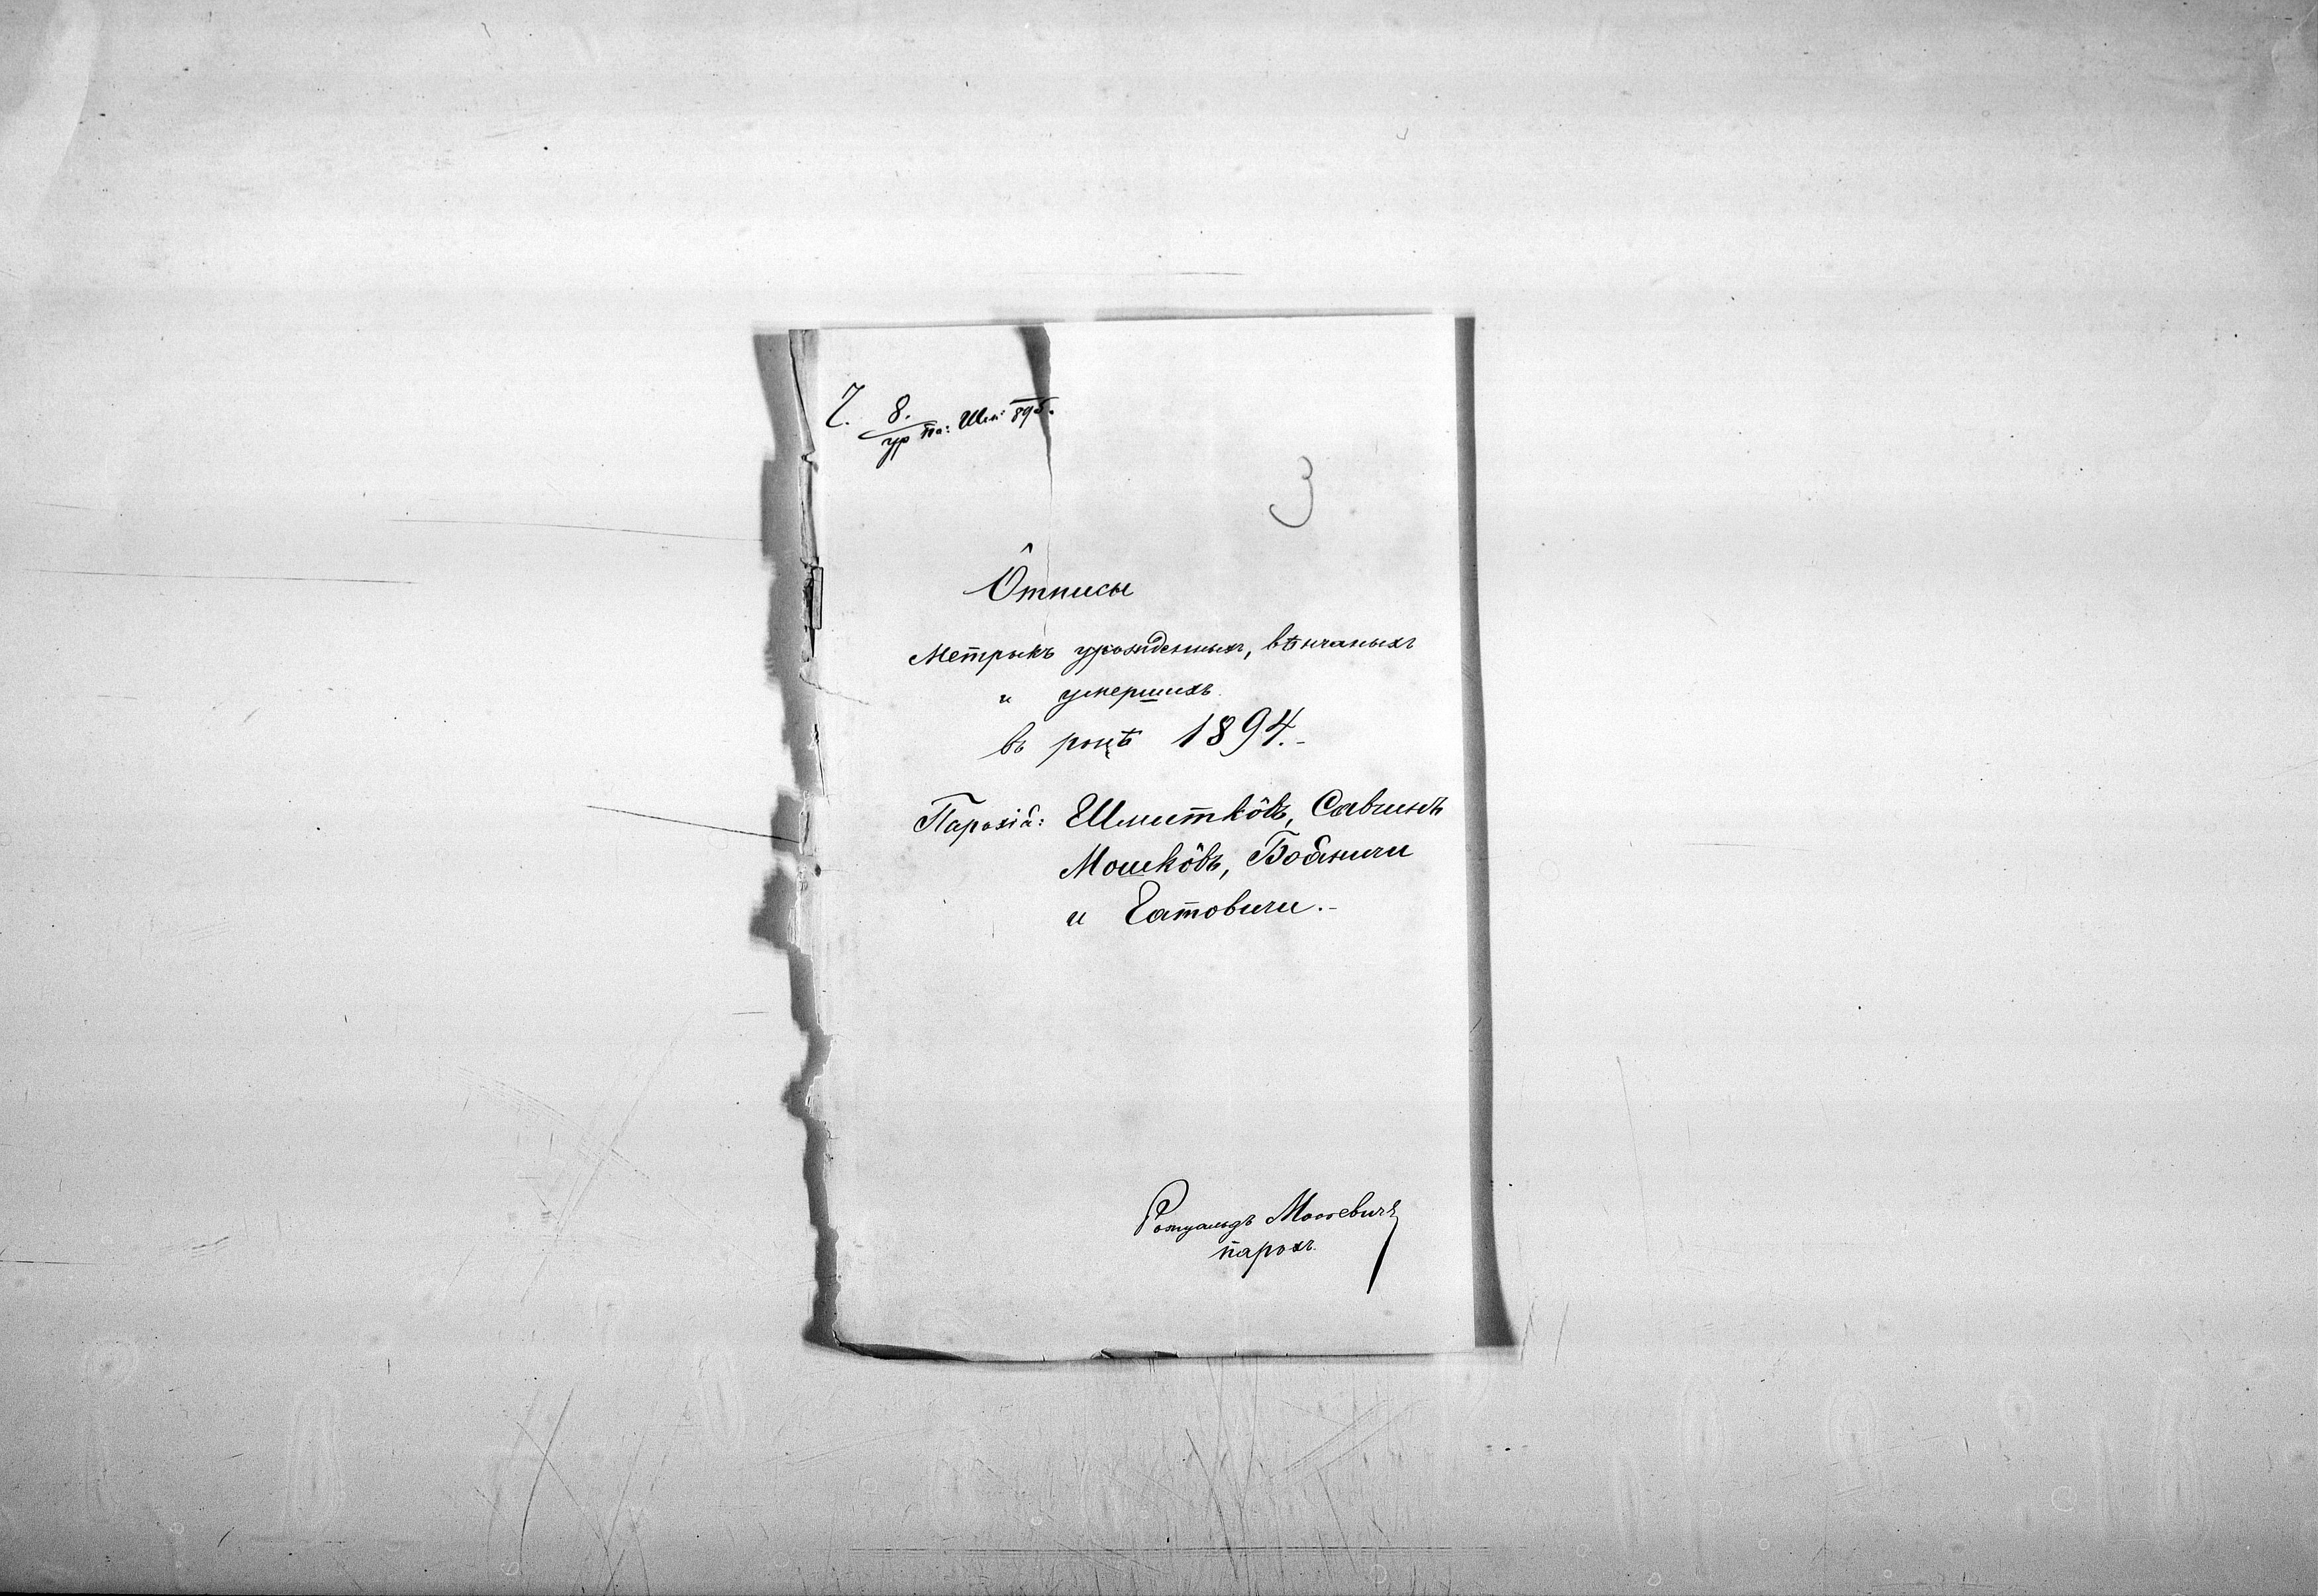 Ч. 8. / ур па: Шм: 895.
3
Ôтписы
Метрыкъ урожденныхъ, вѣнчаныхъ
и умершихъ
въ роцѣ 1894.-
Парохіа: Шмиткôвъ, Савчинъ
Мошкôвъ, Бобяничи
и Гатовичи.-
Ромуальдъ Мосевичъ
парохъ.